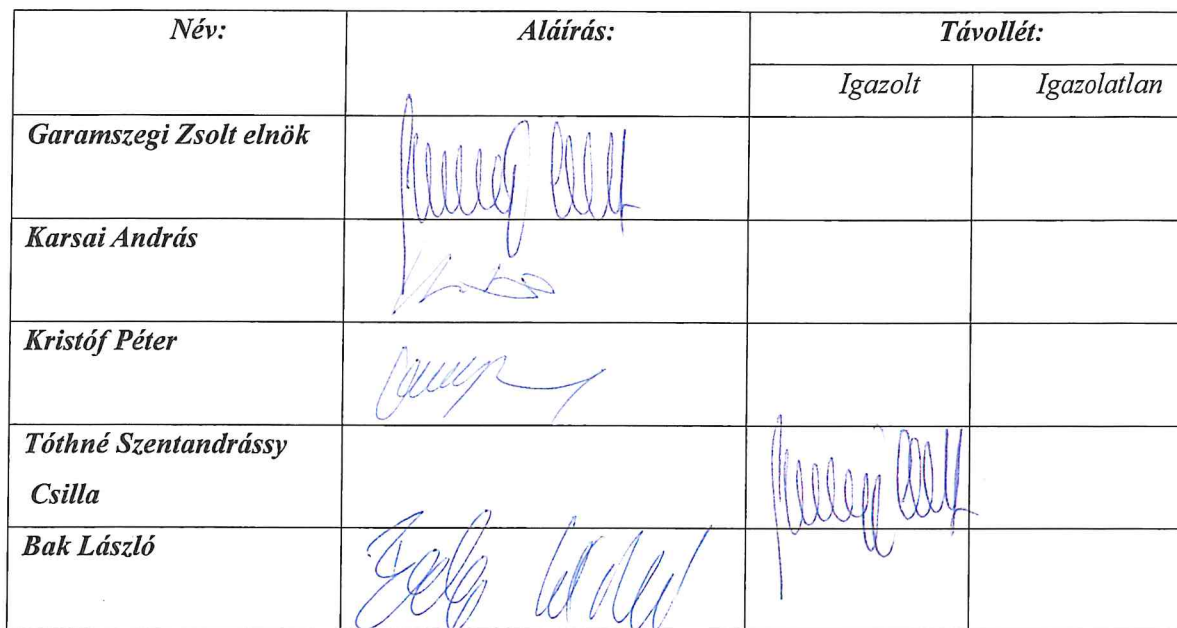 Név: Aláírás: Távollét:
Igazolt Igazolatlan
Garamszegi Zsolt elnök
Karsai András
Kristóf Péter
Tóthné Szentandrássy
Csilla
Bak László